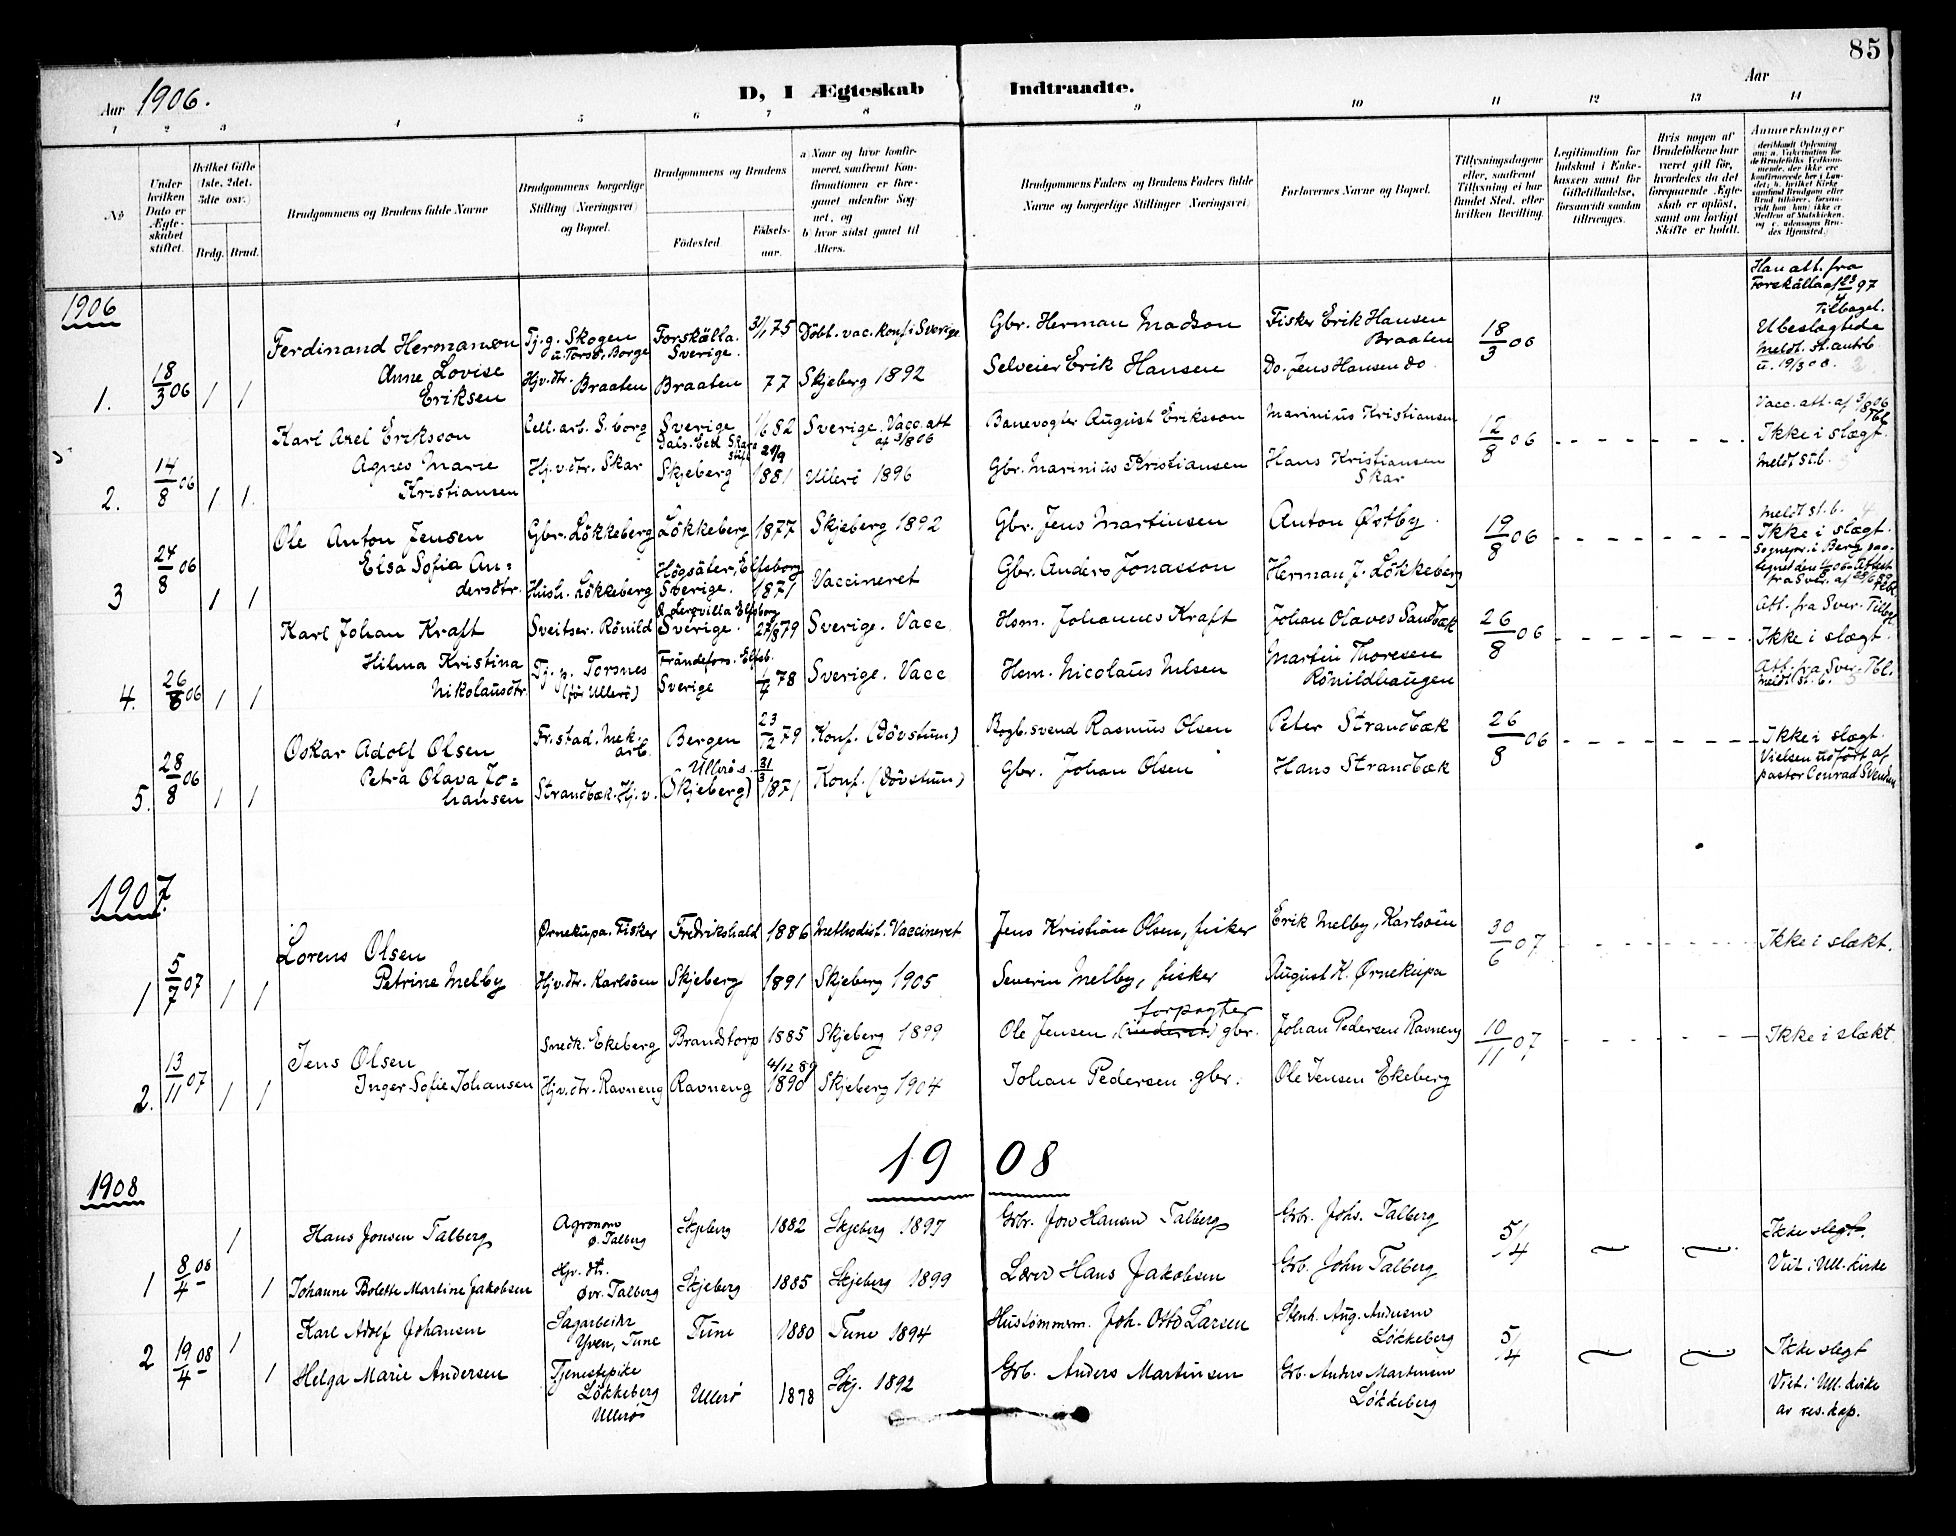 85
Aar 1906.
D, I Ægteskab Indtraadte.
Aar
1 2 3 4 5 6 7 8 9 10 11 12 13 14
No
Under hvilken Dato er Ægteskabet stiftet.
Hvilket Gifte (1ste, 2det, 3dte osv.)
Brdg. Brud.
Brudgommens og Brudens fulde Navne
Brudgommens borgerlige Stilling (Næringsvei) og Bopæl.
Brudgommens og Brudens
Födested
Födselsaar.
a Naar og hvor konfirmeret, saafremt Konfirmationen er foregaaet udenfor Sognet, og
b hvor sidst gaaet til Alters.
Brudgommens Faders og Brudens Faders fulde Navne og borgerlige Stillinger (Næringsvei)
Forlovernes Navne og Bopæl.
Tillysningsdagene eller, saafremt Tillysning ei har fundet Sted, efter hvilken Bevilling.
Legitimation for Indskud i Enkekassen samt for Giftetilladelse, forsaavidt saadan tiltrænges.
Hvis nogen af Brudefolkene har været gift för, hvorledes da det foregaaende Ægteskab er oplöst, samt om lovligt Skifte er holdt.
Anmerkninger
1906
1. 18/3 06 1 1
Ferdinand Hermanson Tj. g. Skogen u. Torsö, Borge Forskälla. Sverige. 3/1 75 Döbt. vac. konf. i Sverige Gbr. Herman Madson Fisker Erik Hansen Braaten 18/3 06
Anne Lovise Eriksen Hjv. dtr. Braaten Braaten 77 Skjeberg 1892 Selveier Erik Hansen Do. Jens Hansen do
Han att. fra Forskälla af 23/4 97 Tilbagel.
Ubeslægtede
Meldt. st. amtb. u. 19/3 06.
2. 14/8 06 1 1.
Karl Axel Eriksson Cell. arb. S. borg Sverige 1/6 82 Sverige. Vacc. att af 3/8 06 Banevogter August Eriksson Marinius Kristiansen 12/8 06
Agnes Marie Kristiansen Hj. v. dtr. Skar Skjeberg 29/9 1881 Ullerö 1896 Gbr. Marinius Kristiansen Hans Kristiansen Skar
Vacc. att. af 3/8 06 Tbl.
Ikke i slægt.
Meldt st. b.
3 24/8 06 1 1
Ole Anton Jensen Gbr. Lökkeberg Lökkeberg 1877 Skjeberg 1892 Gbr. Jens Martinsen Anton Østby. 19/8 06
Elsa Sofia Andersdtr. Hush. Lökkeberg Högsäter, Elfsborg Sverige. 1871 Vaccineret Gbr. Anders Jonasson Herman J. Lökkeberg
Meldt st. b. 4
Ikke i slægt.
4. 26/8 06 1 1
Karl Johan Kraft Sveitser. Rönild Sverige. 27/8 79 Sverige. Vacc Hsm. Johannes Kraft Johan Olaves Sandbæk 26/8 06
Hilma Kristina Nikolausdtr. Tj. p. Torsnes (för Ullerö) Frändefors. Elfsb. Sverige 1/4 78 Sverige. Vacc Hsm. Nicolaus Nilsen Martin Thoresen Rönildhaugen
Att. fra Sver. Tilbgl.
Ikke i slægt.
Att. fra Sver. Tbl.
Meldt st. b. 5
5. 28/8 06 1 1
Oskar Adolf Olsen Fr. stad. Mek. arb. Bergen 23/12 79 Konf. (Dövstum) Bogb. svend Rasmus Olsen Peter Strandbæk 26/8 06
Petra Olava Johansen Strandbæk. Hj. v. Ullerö s. (Skjeberg) 31/3 1871 Konf. (Dövstum) Gbr. Johan Olsen Hans Strandbæk
Ikke i slægt.
Vielsen udført af pastor Conrad Svendsen
1907.
1 5/7 07 1 1
Lorens Olsen Ørnekupa. Fisker Fredrikshald 1886 Methodist. Vaccineret Jens Kristian Olsen, fisker Erik Melby, Karlsöen 30/6 07 Ikke i slækt.
Petrine Melby Hjv. dtr. Karlsöen Skjeberg 1891 Skjeberg 1905 Severin Melby, fisker August K. Ørnekupa
2. 13/11 07 1 1
Jens Olsen Snedk. Ekeberg Brandtorp 1885 Skjeberg 1899 Ole Jensen, forpagter gbr. Johan Pedersen Ravneng 10/11 07 Ikke i slækt.
Inger Sofie Johansen Hjv. dtr. Ravneng Ravneng 4/12 89 1890 Skjeberg 1904 Johan Pedersen gbr. Ole Jensen Ekeberg
1908
1908
1 8/4 08 1
Hans Jonsen Talberg Agronom Ø. Talberg Skjeberg 1882 Skjeberg 1897 Gbr. Jon Hansen Talberg Gbr. Johs. Talberg 5/4 Ikke slegt.
1 Johanne Bolette Martine Jakobsen Hjv. dtr. Øvr. Talberg Skjeberg 1885 Skjeberg 1899 Lærer Hans Jakobsen Grb. John Talberg Viet i Ull. kirke
2 19/4 08 1
Karl Adolf Johansen Sagarbeider Yven, Tune Tune 1880 Tune 1894 Hustömmerm. Joh. Otto Larsen Stenh. Aug. Andersen Lökkeberg 5/4 Ikke slegt
1 Helga Marie Andersen Tjenestepike Lökkeberg Ullerös Ullerö 1878 Skj. 1892 Grb. Anders Martinsen Grb. Anders Martinsen Lökkeberg Viet i Ull. kirke av res. kap.